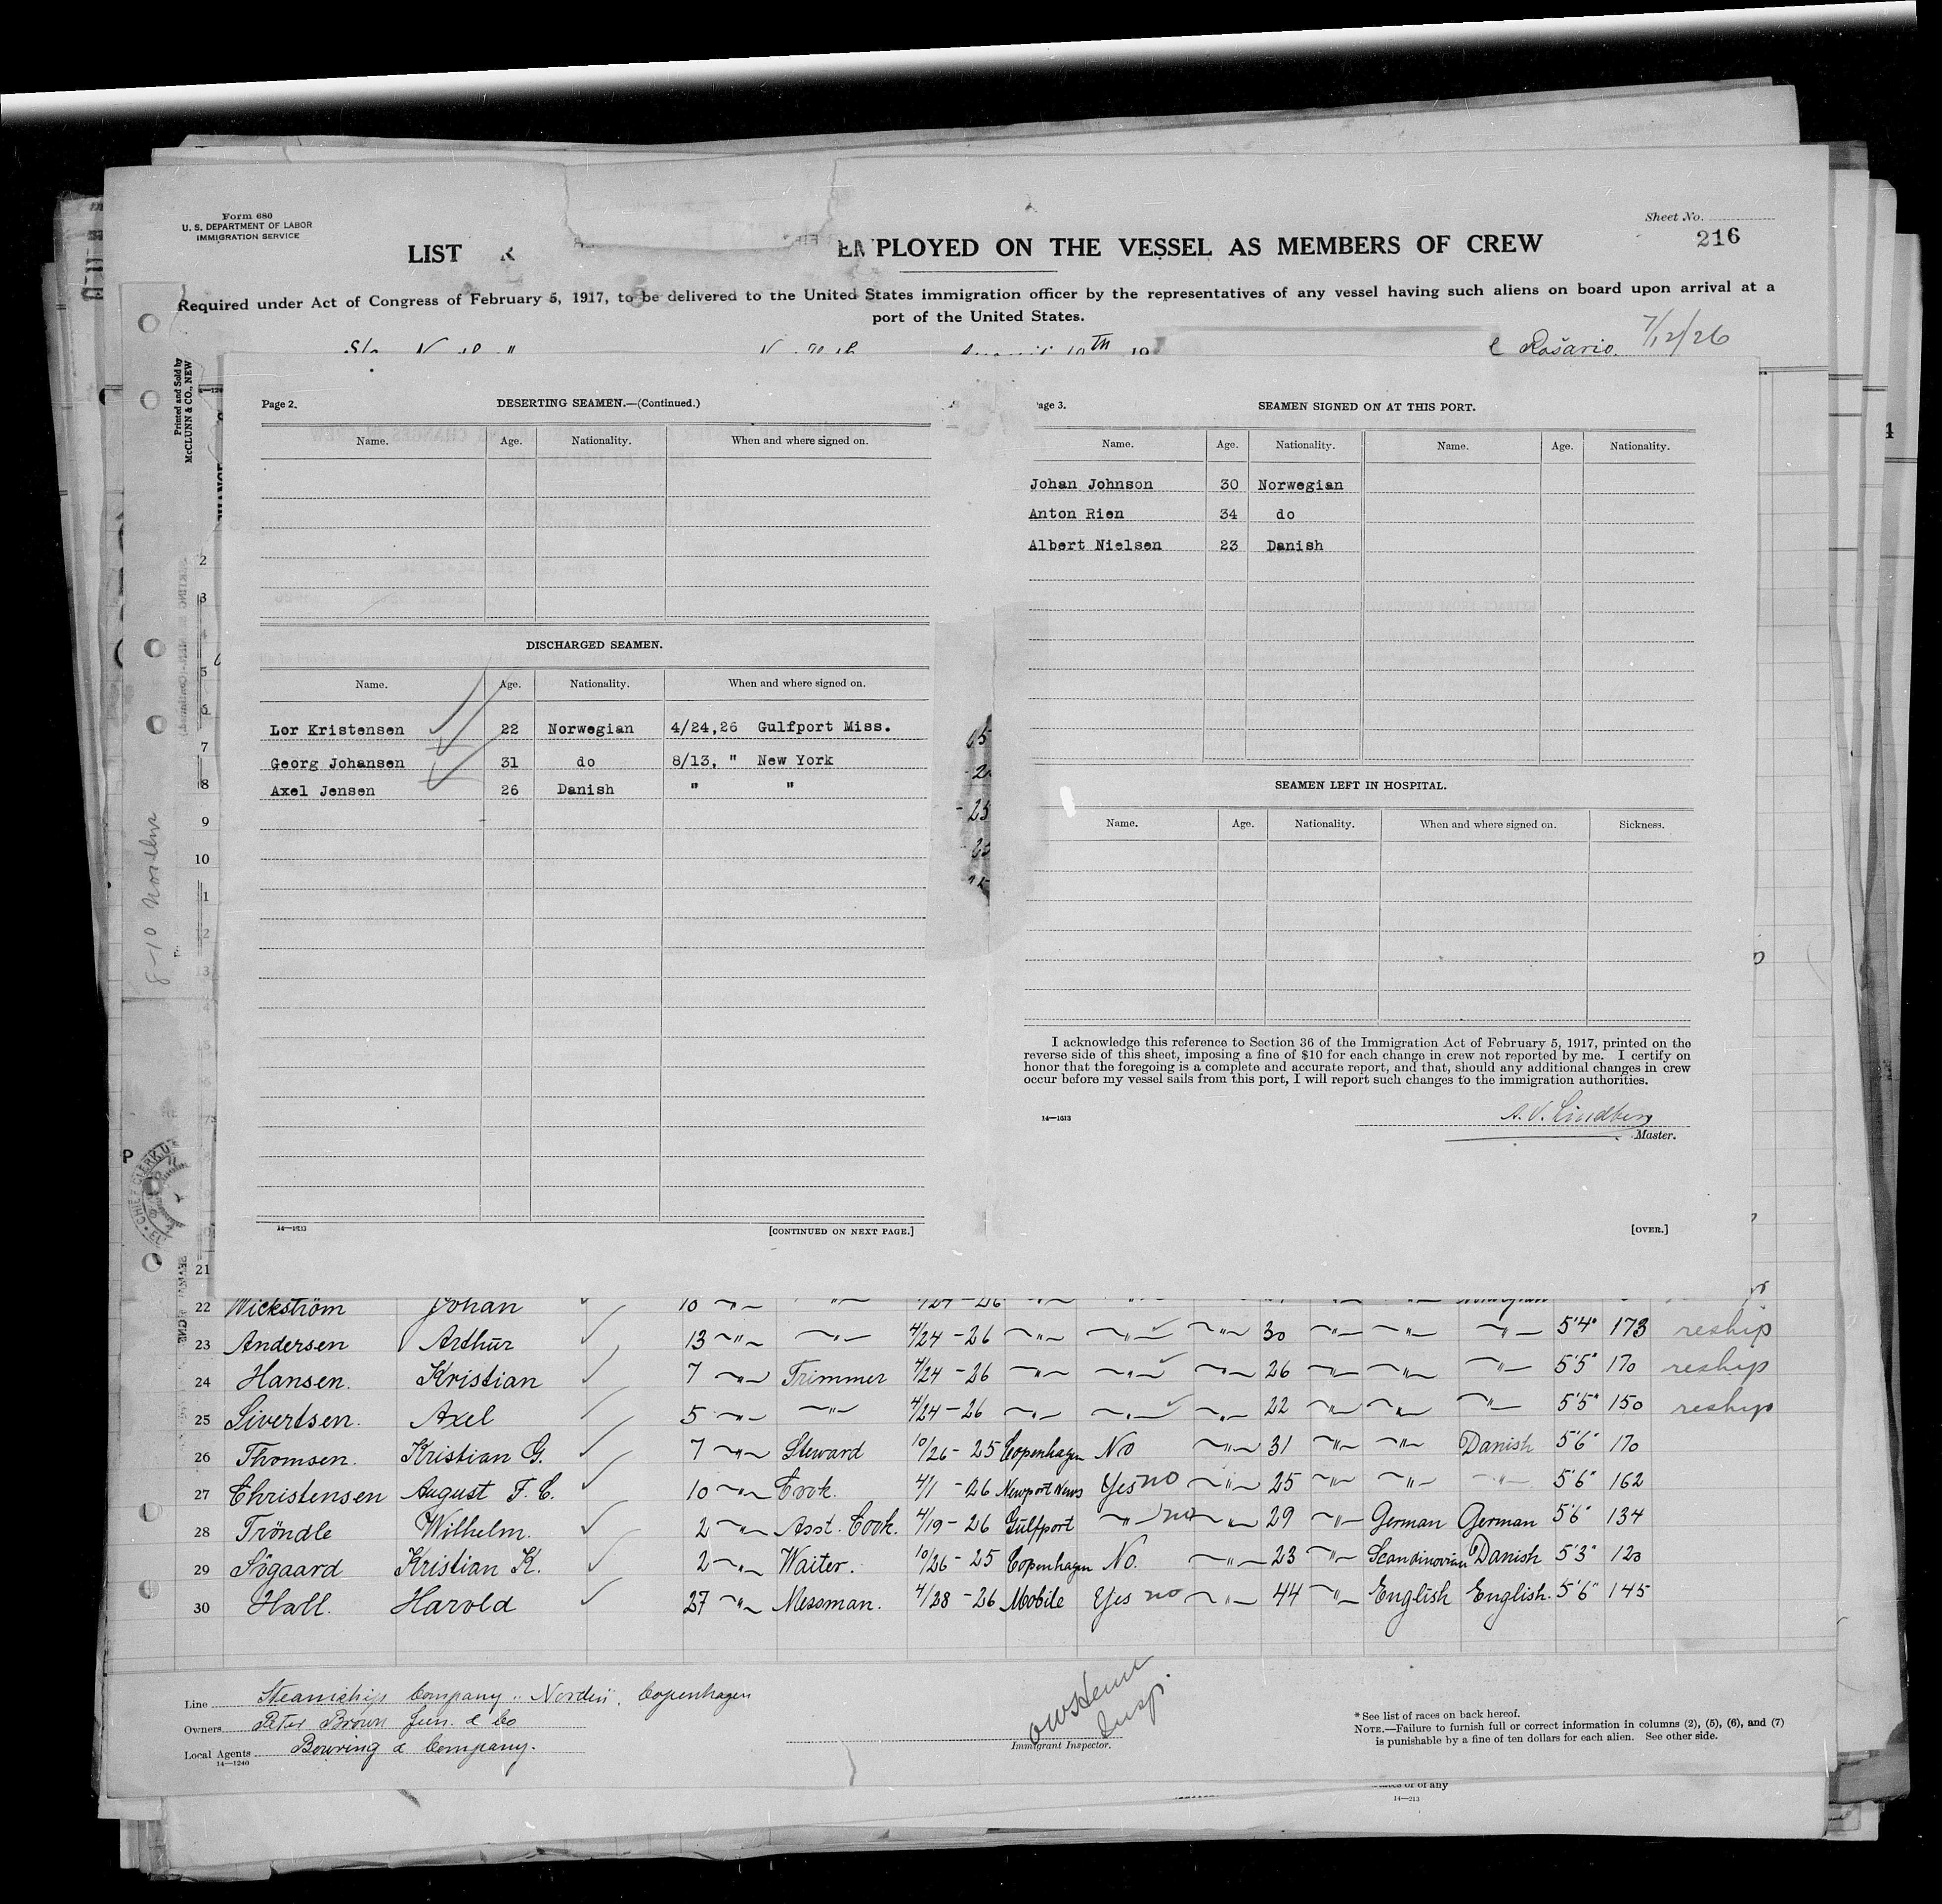 Form 680
U. S. DEPARTMENT OF LABOR
IMMIGRATION SERVICE
Sheet No.
216
LIST EMPLOYED ON THE VESSEL AS MEMBERS OF CREW
Required under Act of Congress of February 5, 1917, to be delivered to the United States immigration officer by the representatives of any vessel having such aliens on board upon arrival at a
port of the United States.
Rosario. 7/12/26
Printed and Sold by
McCLUNN & CO., NEW
Page 2. DESERTING SEAMEN.—(Continued.)
Name. Age. Nationality. When and where signed on.
DISCHARGED SEAMEN.
Name. Age. Nationality. When and where signed on.
Lor Kristensen 22 Norwegian 4/24,26 Gulfport Miss.
Georg Johansen 31 do 8/13, " New York
Axel Jensen 26 Danish " "
14—1613 [CONTINUED ON NEXT PAGE.]
age 3. SEAMEN SIGNED ON AT THIS PORT.
Name. Age. Nationality. Name. Age. Nationality.
Johan Johnson 30 Norwegian
Anton Rien 34 do
Albert Nielsen 23 Danish
SEAMEN LEFT IN HOSPITAL.
Name. Age. Nationality. When and where signed on. Sickness.
I acknowledge this reference to Section 36 of the Immigration Act of February 5, 1917, printed on the
reverse side of this sheet, imposing a fine of $10 for each change in crew not reported by me. I certify on
honor that the foregoing is a complete and accurate report, and that, should any additional changes in crew
occur before my vessel sails from this port, I will report such changes to the immigration authorities.
14—1613
A. V. Lindberg
Master.
[OVER.]
2
3
5
6
7
8
9
10
21
22 Wickström Johan 10 " "
23 Andersen Arthur 13 " " 4/24 - 26 " " " 30 " " " 5'4" 173 reship
24 Hansen. Kristian 7 " Trimmer 4/24 - 26 " " " 26 " " " 5'5" 170 reship
25 Sivertsen. Axel 5 " " 4/24 - 26 " " " 22 " " " 5'5" 150 reship
26 Thomsen. Kristian G. 7 " Steward 10/26 - 25 Copenhagen No " 31 " " Danish 5'6" 170
27 Christensen August F. C. 10 " Cook. 4/1 - 26 Newport News Yes no " 25 " " " 5'6" 162
28 Tröndle Wilhelm. 2 " Asst. Cook. 4/19 - 26 Gulfport " no " 29 " German German 5'6" 134
29 Sögaard Kristian K. 2 " Waiter. 10/26 - 25 Copenhagen No. " 23 " Scandinavian Danish 5'3" 120
30 Hall. Harold 27 " Messman. 4/28 - 26 Mobile Yes no " 44 " English English. 5'6" 145
Line Steamship Company "Norden", Copenhagen
Owners Peter Brown Jun. & Co
Local Agents Bowring & Company.
14—1240
Insp.
Immigrant Inspector.
* See list of races on back hereof.
NOTE.—Failure to furnish full or correct information in columns (2), (5), (6), and (7)
is punishable by a fine of ten dollars for each alien. See other side.
of any
14—213